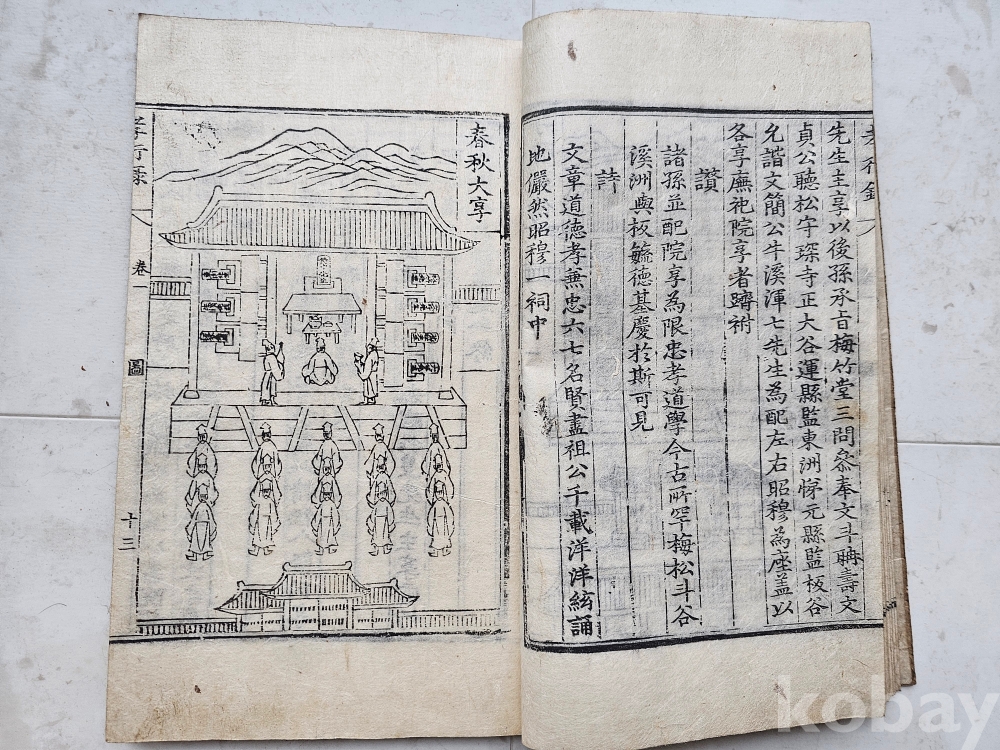 先生主享以後孫承旨梅竹堂三問叅奉文斗耼壽文
貞公聽松守琛寺正大谷運縣監東洲悌元縣監板谷
允諧文簡公牛溪渾七先生為配左右昭穆為座盖以
各享廡祀院享者躋祔
讚
諸孫並配院享為限忠孝道學今古所罕梅松斗谷
溪洲與板毓德基慶於斯可見
詩
文章道德孝兼忠六七名賢盡祖公千載洋洋絃誦
地儼然昭穆一祠中
春秋大享
孝行錄
卷一
圖
十三
kobay